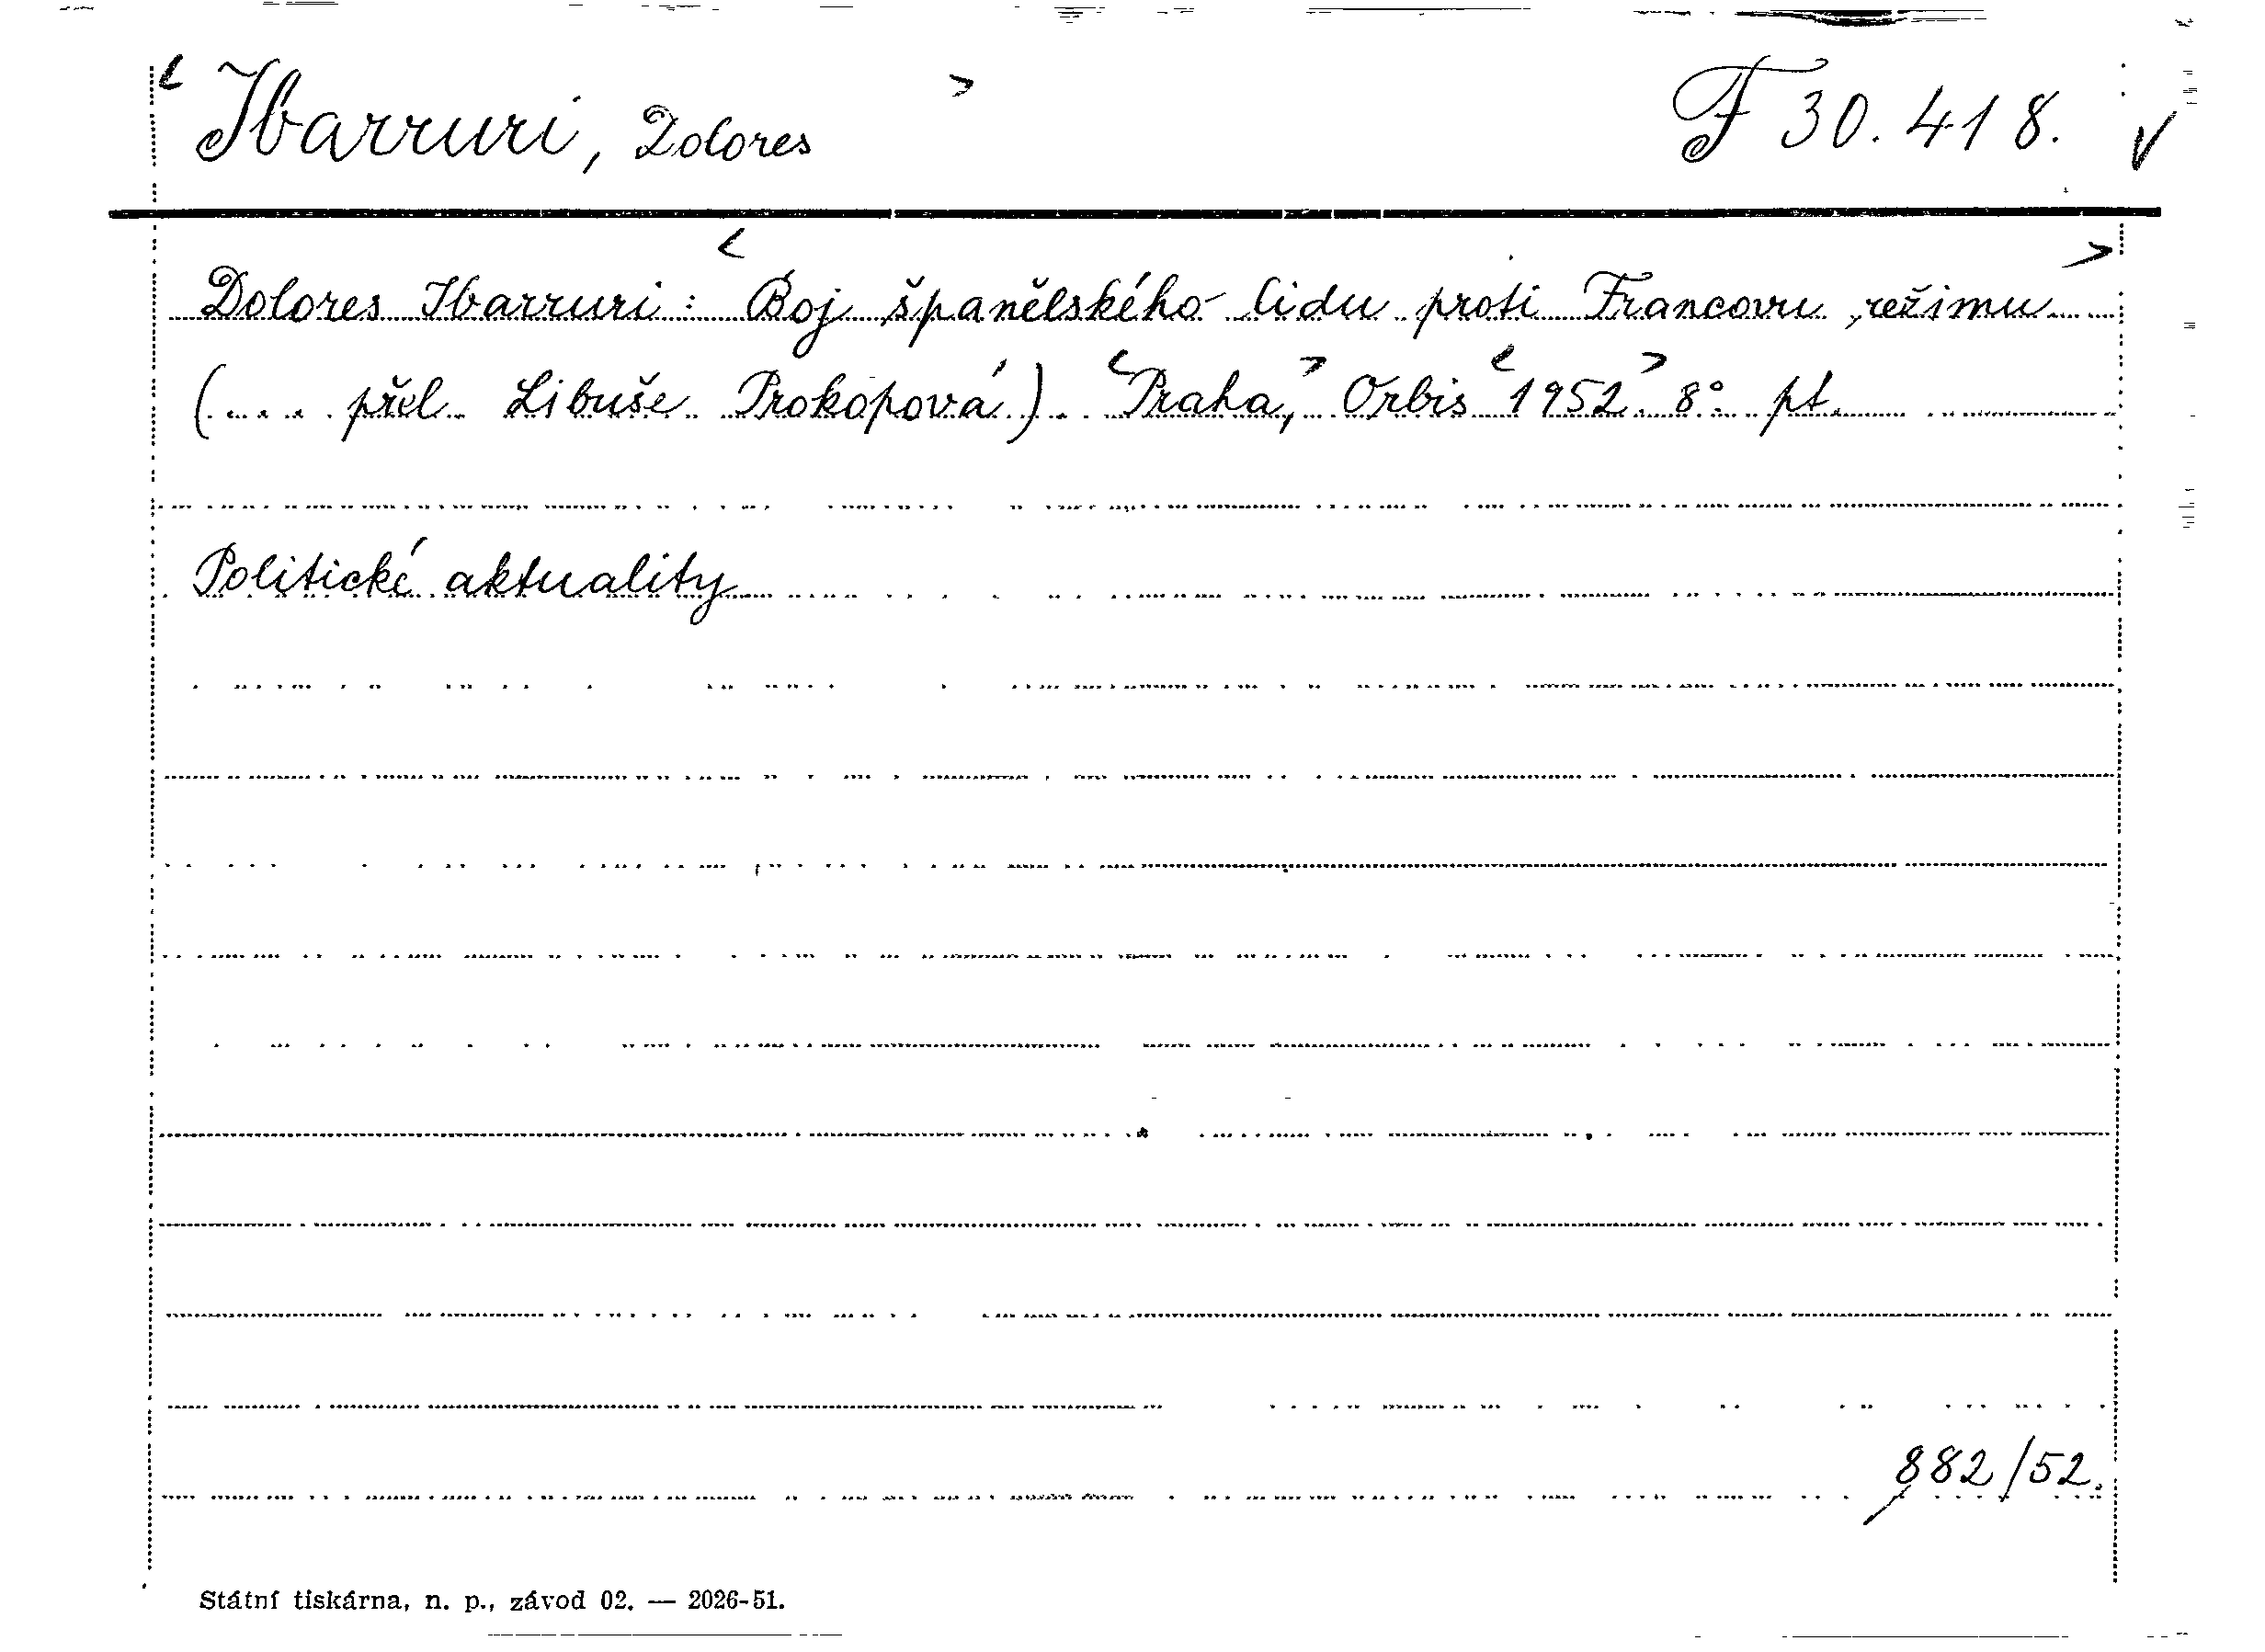 < Ibarruri, Dolores > F 30.418. ✓
Dolores Ibarruri: < Boj španělského lidu proti Francovu režimu >
(.... přel. Libuše Prokopová). < Praha, > Orbis < 1952. > 8° pt.
Politické aktuality
882/52.
Státní tiskárna, n. p., závod 02. — 2026-51.